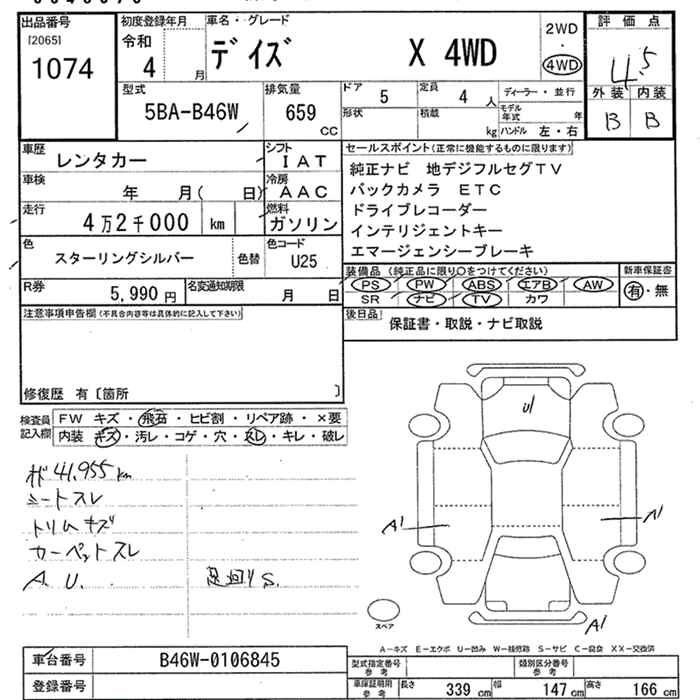 出品番号
[2065]
1074
初度登録年月
令和
4 月
車名・グレード
デイズ X 4WD
2WD
・
4WD
評価点
4.5
外装 内装
B B
型式
5BA-B46W
排気量
659
CC
ドア 5
定員 4 人
形状
積載 kg
ディーラー・並行
モデル年式 年
ハンドル 左・右
車歴 レンタカー
シフト IAT
車検 年 月( 日)
冷房 AAC
走行 4万2千000 km
燃料 ガソリン
色 スターリングシルバー 色替
色コード U25
R券 5,990円
名変通知期限 月 日
セールスポイント(正常に機能するものに限ります)
純正ナビ 地デジフルセグTV
バックカメラ ETC
ドライブレコーダー
インテリジェントキー
エマージェンシーブレーキ
装備品(純正品に限り○をつけてください)
PS PW ABS エアB AW
SR ナビ TV カワ
新車保証書
有・無
後日品 保証書・取説・ナビ取説
注意事項申告欄(不具合内容等は具体的に記入して下さい)
修復歴 有〔箇所 〕
検査員記入欄
FW キズ・飛石・ヒビ割・リペア跡・×要
内装 キズ・汚レ・コゲ・穴・スレ・キレ・破レ
41,955km
シートスレ
トリムキズ
カーペットスレ
A. U.
足回りS.
U1
A1
A1
A1
スペア
A－キズ E－エクボ U－凹み W－補修跡 S－サビ C－腐食 XX－交換済
車台番号 B46W-0106845
登録番号
型式指定番号参考
類別区分番号参考
車庫証明用参考
長さ 339 cm
幅 147 cm
高さ 166 cm